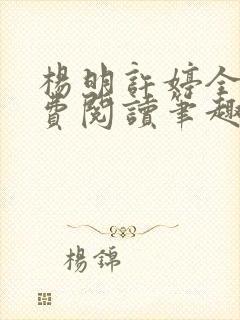 楊明許婷全
費閱讀筆趣
楊錦